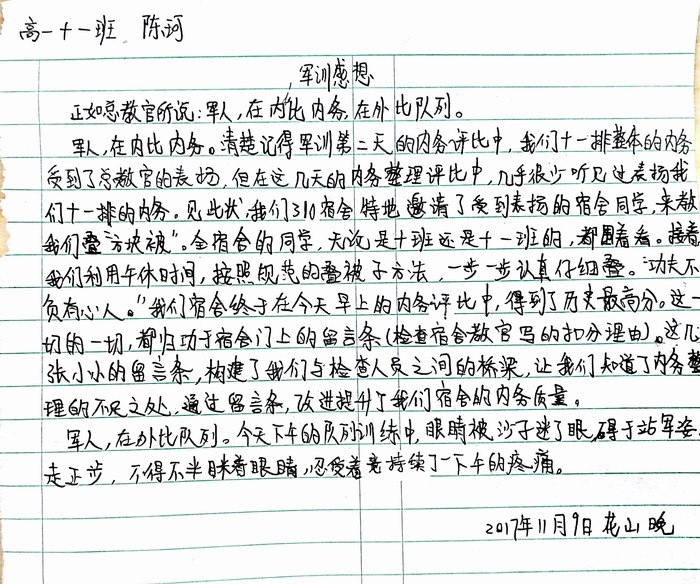 高一十一班 陈珂
军训感想
正如总教官所说:军人,在内比内务,在外比队列。
军人,在内比内务。清楚记得军训第二天的内务评比中,我们十一排整体的内务
受到了总教官的表扬,但在这几天的内务整理评比中,几乎很少听见过表扬我
们十一排的内务。见此状,我们310宿舍特地邀请了受到表扬的宿舍同学,来教
我们叠“方块被”。全宿舍的同学,无论是十班还是十一班的,都围着看。接着
我们利用午休时间,按照规范的叠被子方法,一步一步认真仔细叠。“功夫不
负有心人。”我们宿舍终于在今天早上的内务评比中,得到了历史最高分。这一
切的一切,都归功于宿舍门上的留言条(检查宿舍教官写的扣分理由)。这几
张小小的留言条,构建了我们与检查人员之间的桥梁,让我们知道了内务整
理的不足之处,通过留言条,改进提升了我们宿舍的内务质量。
军人,在外比队列。今天下午的队列训练中,眼睛被沙子迷了眼,碍于站军姿
走正步,不得不半眯着眼睛,忍受着竟持续了一下午的疼痛。
2017年11月9日 花山 晚